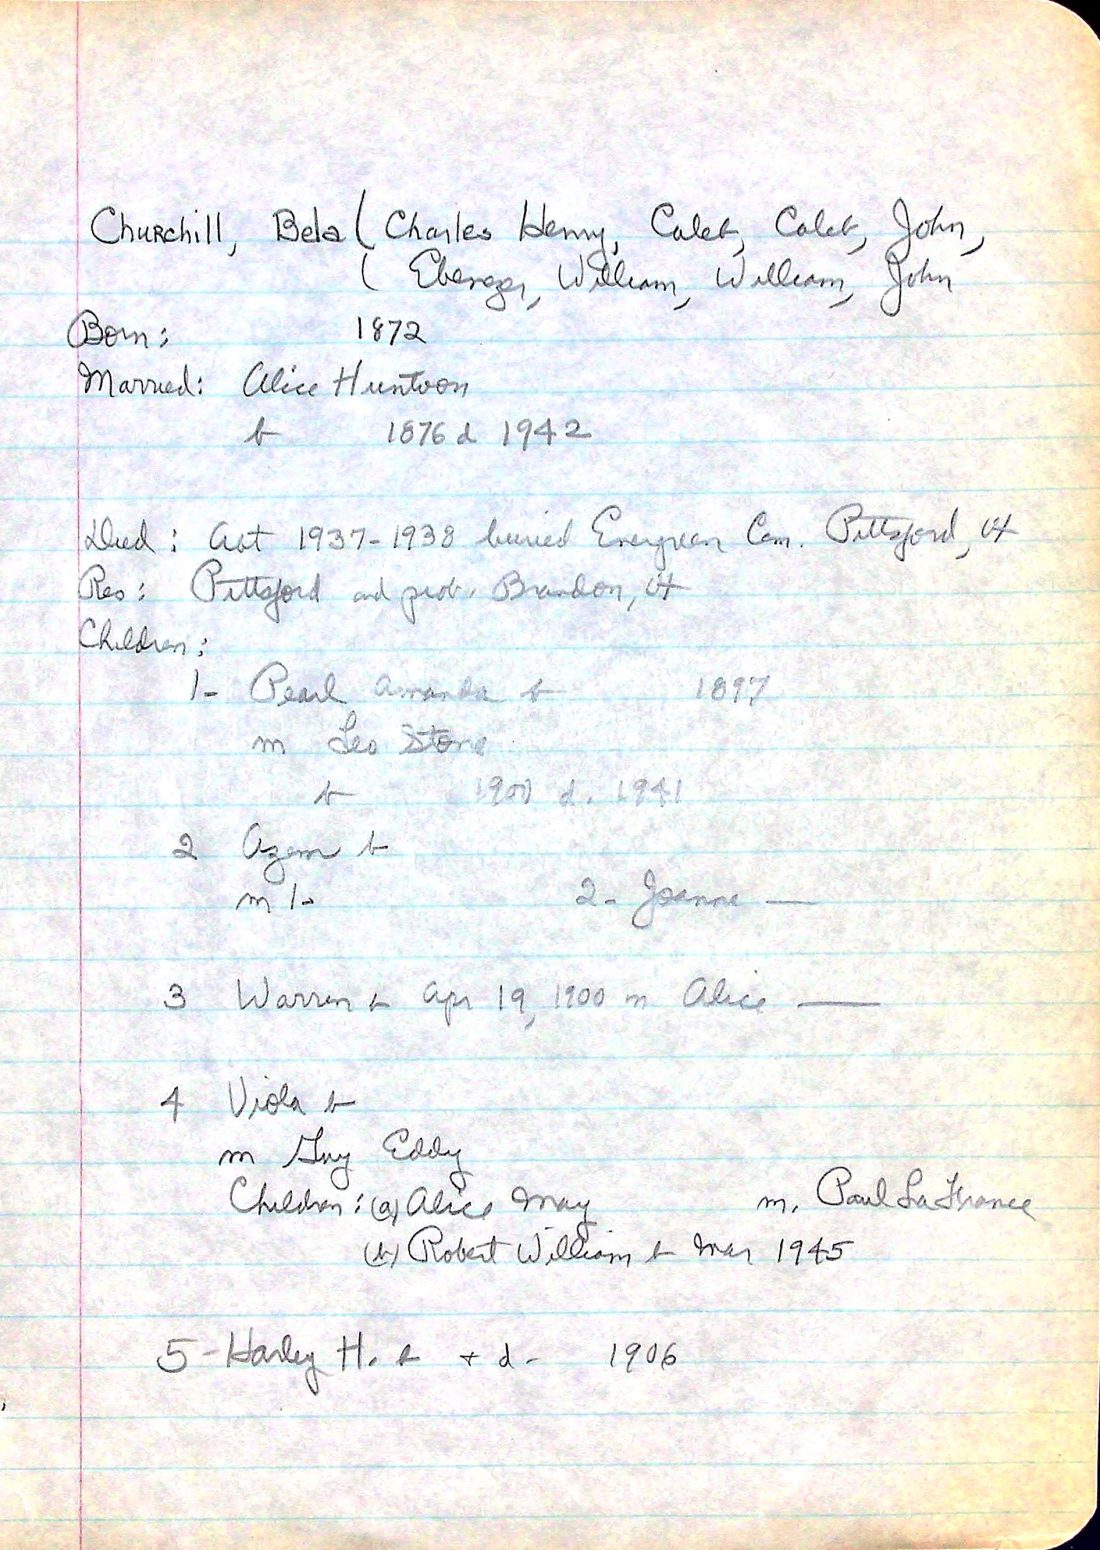 Churchill, Bela ( Charles Henry, Caleb, Caleb, John,
( Ebenezer, William, William, John
Born: 1872
Married: Alice Huntoon
b 1876 d 1942
Died: Oct 1937-1938 buried Evergreen Cem. Pittsford, Vt
Res: Pittsford and prob. Brandon, Vt
Children:
1- Pearl Amanda b 1897
m Leo Stone
b 1900 d. 1941
2 Azem b
m 1- 2- Joanne —
3 Warren b Apr 19, 1900 m Alice —
4 Viola b
m Guy Eddy
Children: (a) Alice May m. Paul LaFrance
(b) Robert William b Mar 1945
5- Harley H. b + d- 1906